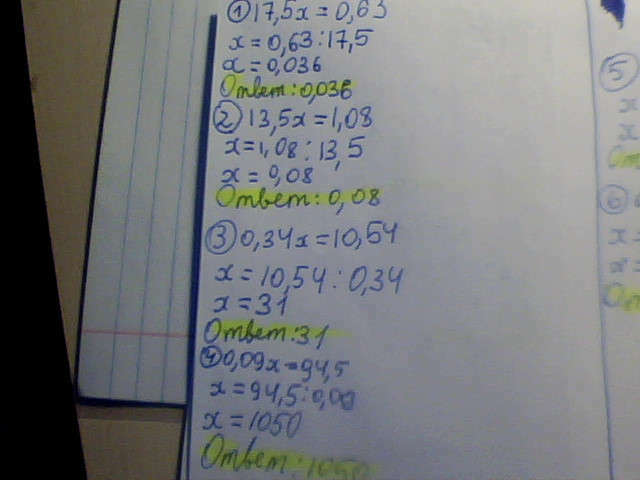 ① 17,5x = 0,63
x = 0,63 : 17,5
x = 0,036
Ответ: 0,036
② 13,5x = 1,08
x = 1,08 : 13,5
x = 0,08
Ответ: 0,08
③ 0,34x = 10,54
x = 10,54 : 0,34
x = 31
Ответ: 31
④ 0,09x = 94,5
x = 94,5 : 0,09
x = 1050
Ответ: 1050
⑤
x
x
⑥
x =
x =